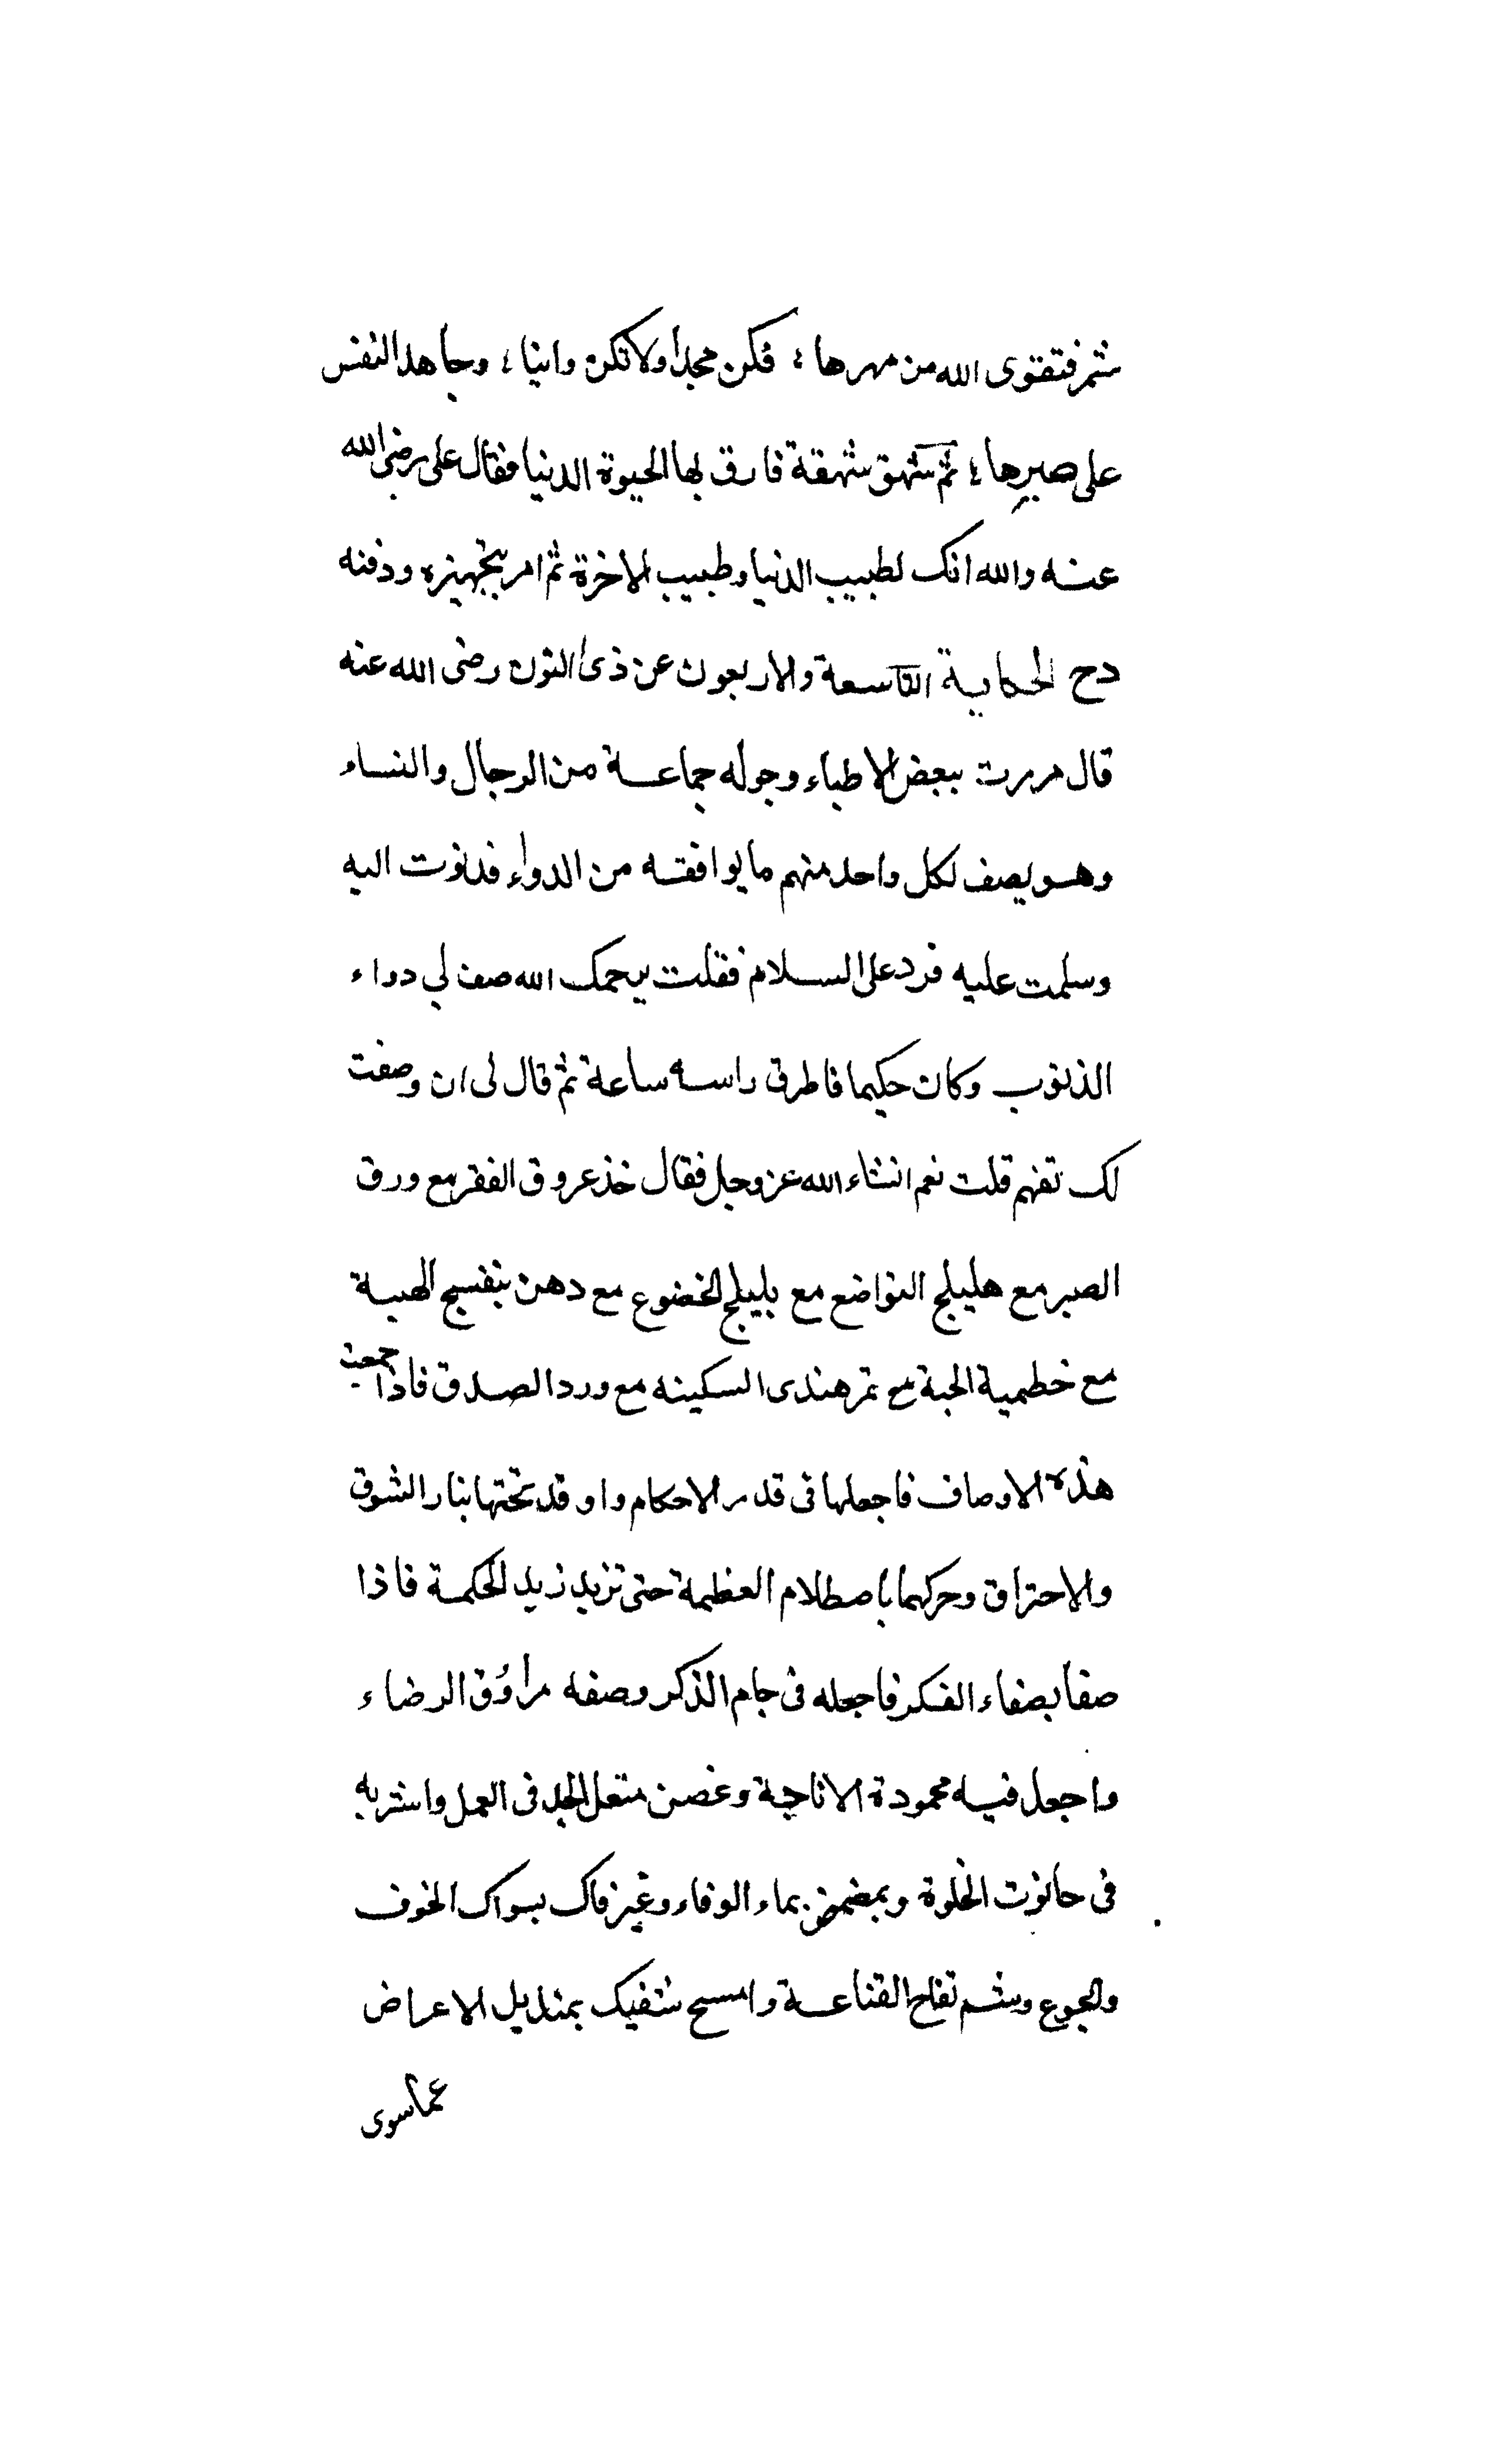 شمر فتقوى الله من مهرها ؛ فكن مجدا ولا تكن وانيا ؛ وجاهد النفس
على صبرها ؛ ثم شهق شهقة فارق بها الحيوة الدنيا فقال على رضى الله
عنه والله انك لطبيب الدنيا وطبيب الاخرة ثم امر بتجهيزه ودفنه
دح الحكاية التاسعة والاربعون عن ذى النون رضى الله عنه
قال مررت ببعض الاطباء وحوله جماعة من الرجال والنساء
وهو يصف لكل واحد منهم ما يوافقه من الدواء فدنوت اليه
وسلمت عليه فرد على السلام فقلت يرحمك الله صف لي دواء
الذنوب وكان حكيما فاطرق راسه ساعة ثم قال لى ان وصفت
لك تفهم قلت نعم انشاء الله عز وجل فقال خذ عروق الفقر مع ورق
الصبر مع هليلج التواضع مع بليلج الخضوع مع دهن بنفسج الهيبة
مع خطمية المحبة مع تمر هندى السكينه مع ورد الصدق فاذا جمعت
هذه الاوصاف فاجعلها فى قدر الاحكام واوقد تحتها بنار الشوق
والاحتراق وحركها باصطلام العظمة حتى تزيد زبد الحكمة فاذا
صفا بصفاء الفكر فاجعله فى جام الذكر وصفه براوُق الرضاء
واجعل فيه محمودة الانابة وغصن الجد فى العمل واشربه
فى حانوت الخلوة وبمضمض بماء الوفاء وغير فاك بسواك الخوف
والجوع وشم تفاح القناعة وامسح شفيك بمنديل الاعراض
عما سوى